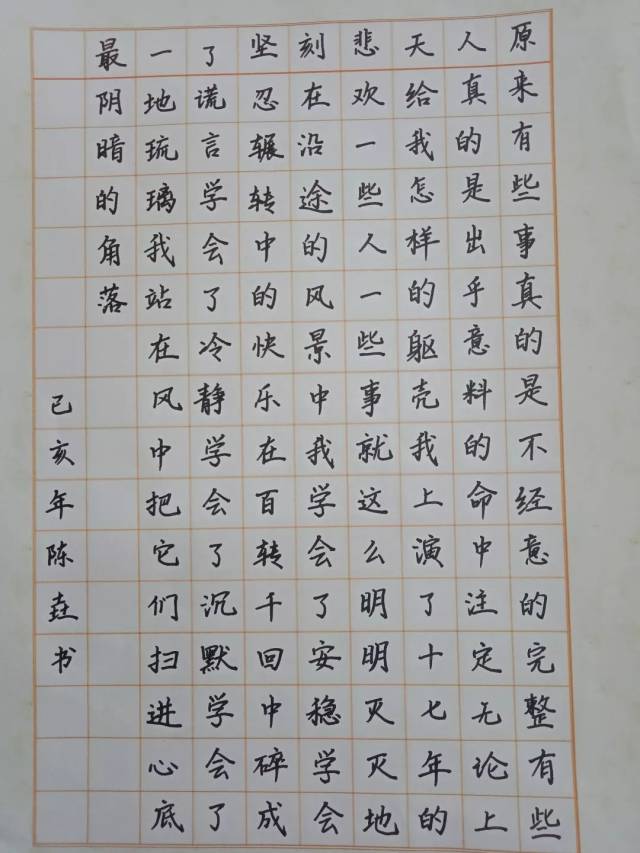 原来有些事真的是不经意的完整有些
人真的是出乎意料的命中注定无论上
天给我怎样的躯壳我上演了十七年的
悲欢一些人一些事就这么明明灭灭地
刻在沿途的风景中我学会了安稳学会
坚忍辗转中的快乐在百转千回中碎成
了谎言学会了冷静学会了沉默学会了
一地琉璃我站在风中把它们扫进心底
最阴暗的角落
己亥年陈垚书